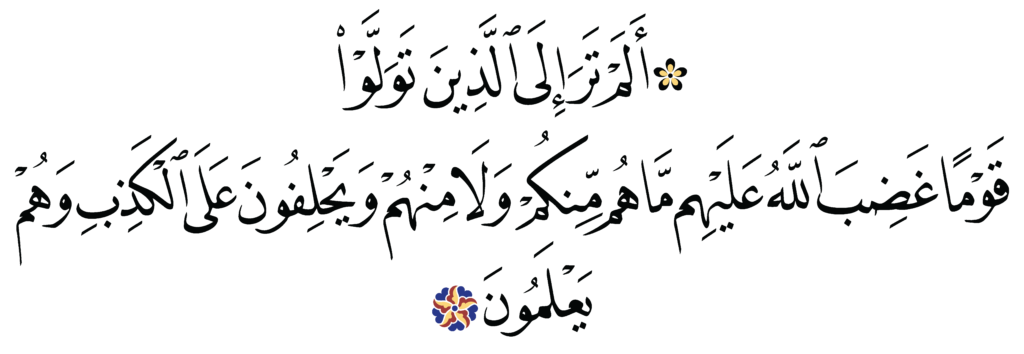 أَلَمْ تَرَ إِلَى ٱلَّذِينَ تَوَلَّوْا۟
قَوْمًا غَضِبَ ٱللَّهُ عَلَيْهِم مَّا هُم مِّنكُمْ وَلَا مِنْهُمْ وَيَحْلِفُونَ عَلَى ٱلْكَذِبِ وَهُمْ
يَعْلَمُونَ